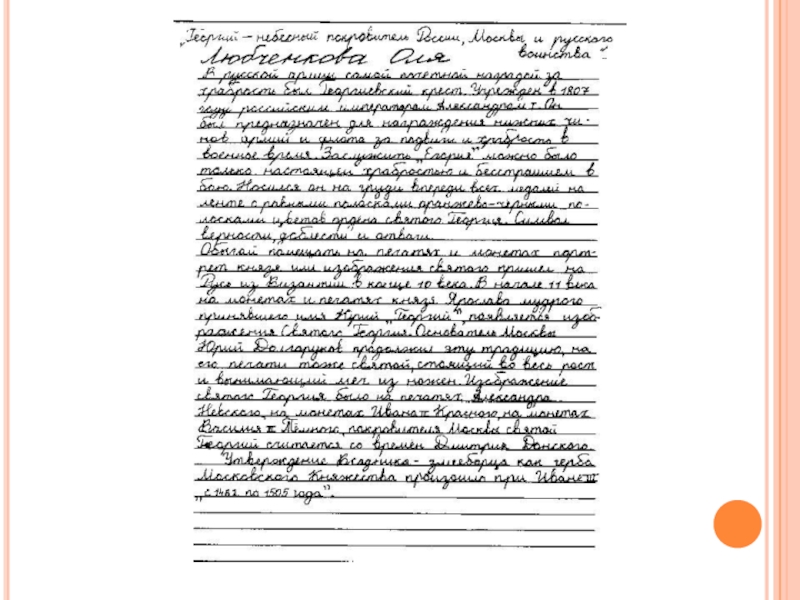 „Георгий – небесный покровитель России, Москвы и русского
воинства".
Любченкова Оля
В русской армии самой почетной наградой за
храбрость был Георгиевский крест. Учрежден в 1807
году российским императором Александром I. Он
был предназначен для награждения нижних чи-
нов армии и флота за подвиги и храбрость в
военное время. Заслужить „Егория" можно было
только настоящей храбростью и бесстрашием в
бою. Носился он на груди впереди всех медалей на
ленте с равными полосками оранжево-черными по-
лосками цветов ордена святого Георгия. Символ
верности, доблести и отваги.
Обычай помещать на печатях и монетах порт-
рет князя или изображения святого пришел на
Русь из Византии в конце 10 века. В начале 11 века
на монетах и печатях князя Ярослава мудрого
принявшего имя Юрий „Георгий", появляется изоб-
ражения Святого Георгия. Основатель Москвы
Юрий Долгоруков продолжил эту традицию, на
его печати тоже святой, стоящий во весь рост
и вынимающий меч из ножен. Изображение
святого Георгия было на печатях Александра
Невского, на монетах Ивана II Красного, на монетах
Василия II Тёмного, покровителя Москвы святой
Георгий считается со времен Дмитрия Донского.
Утверждение Всадника - змееборца как герба
Московского Княжества произошло при Иване III
„с 1462 по 1505 года".